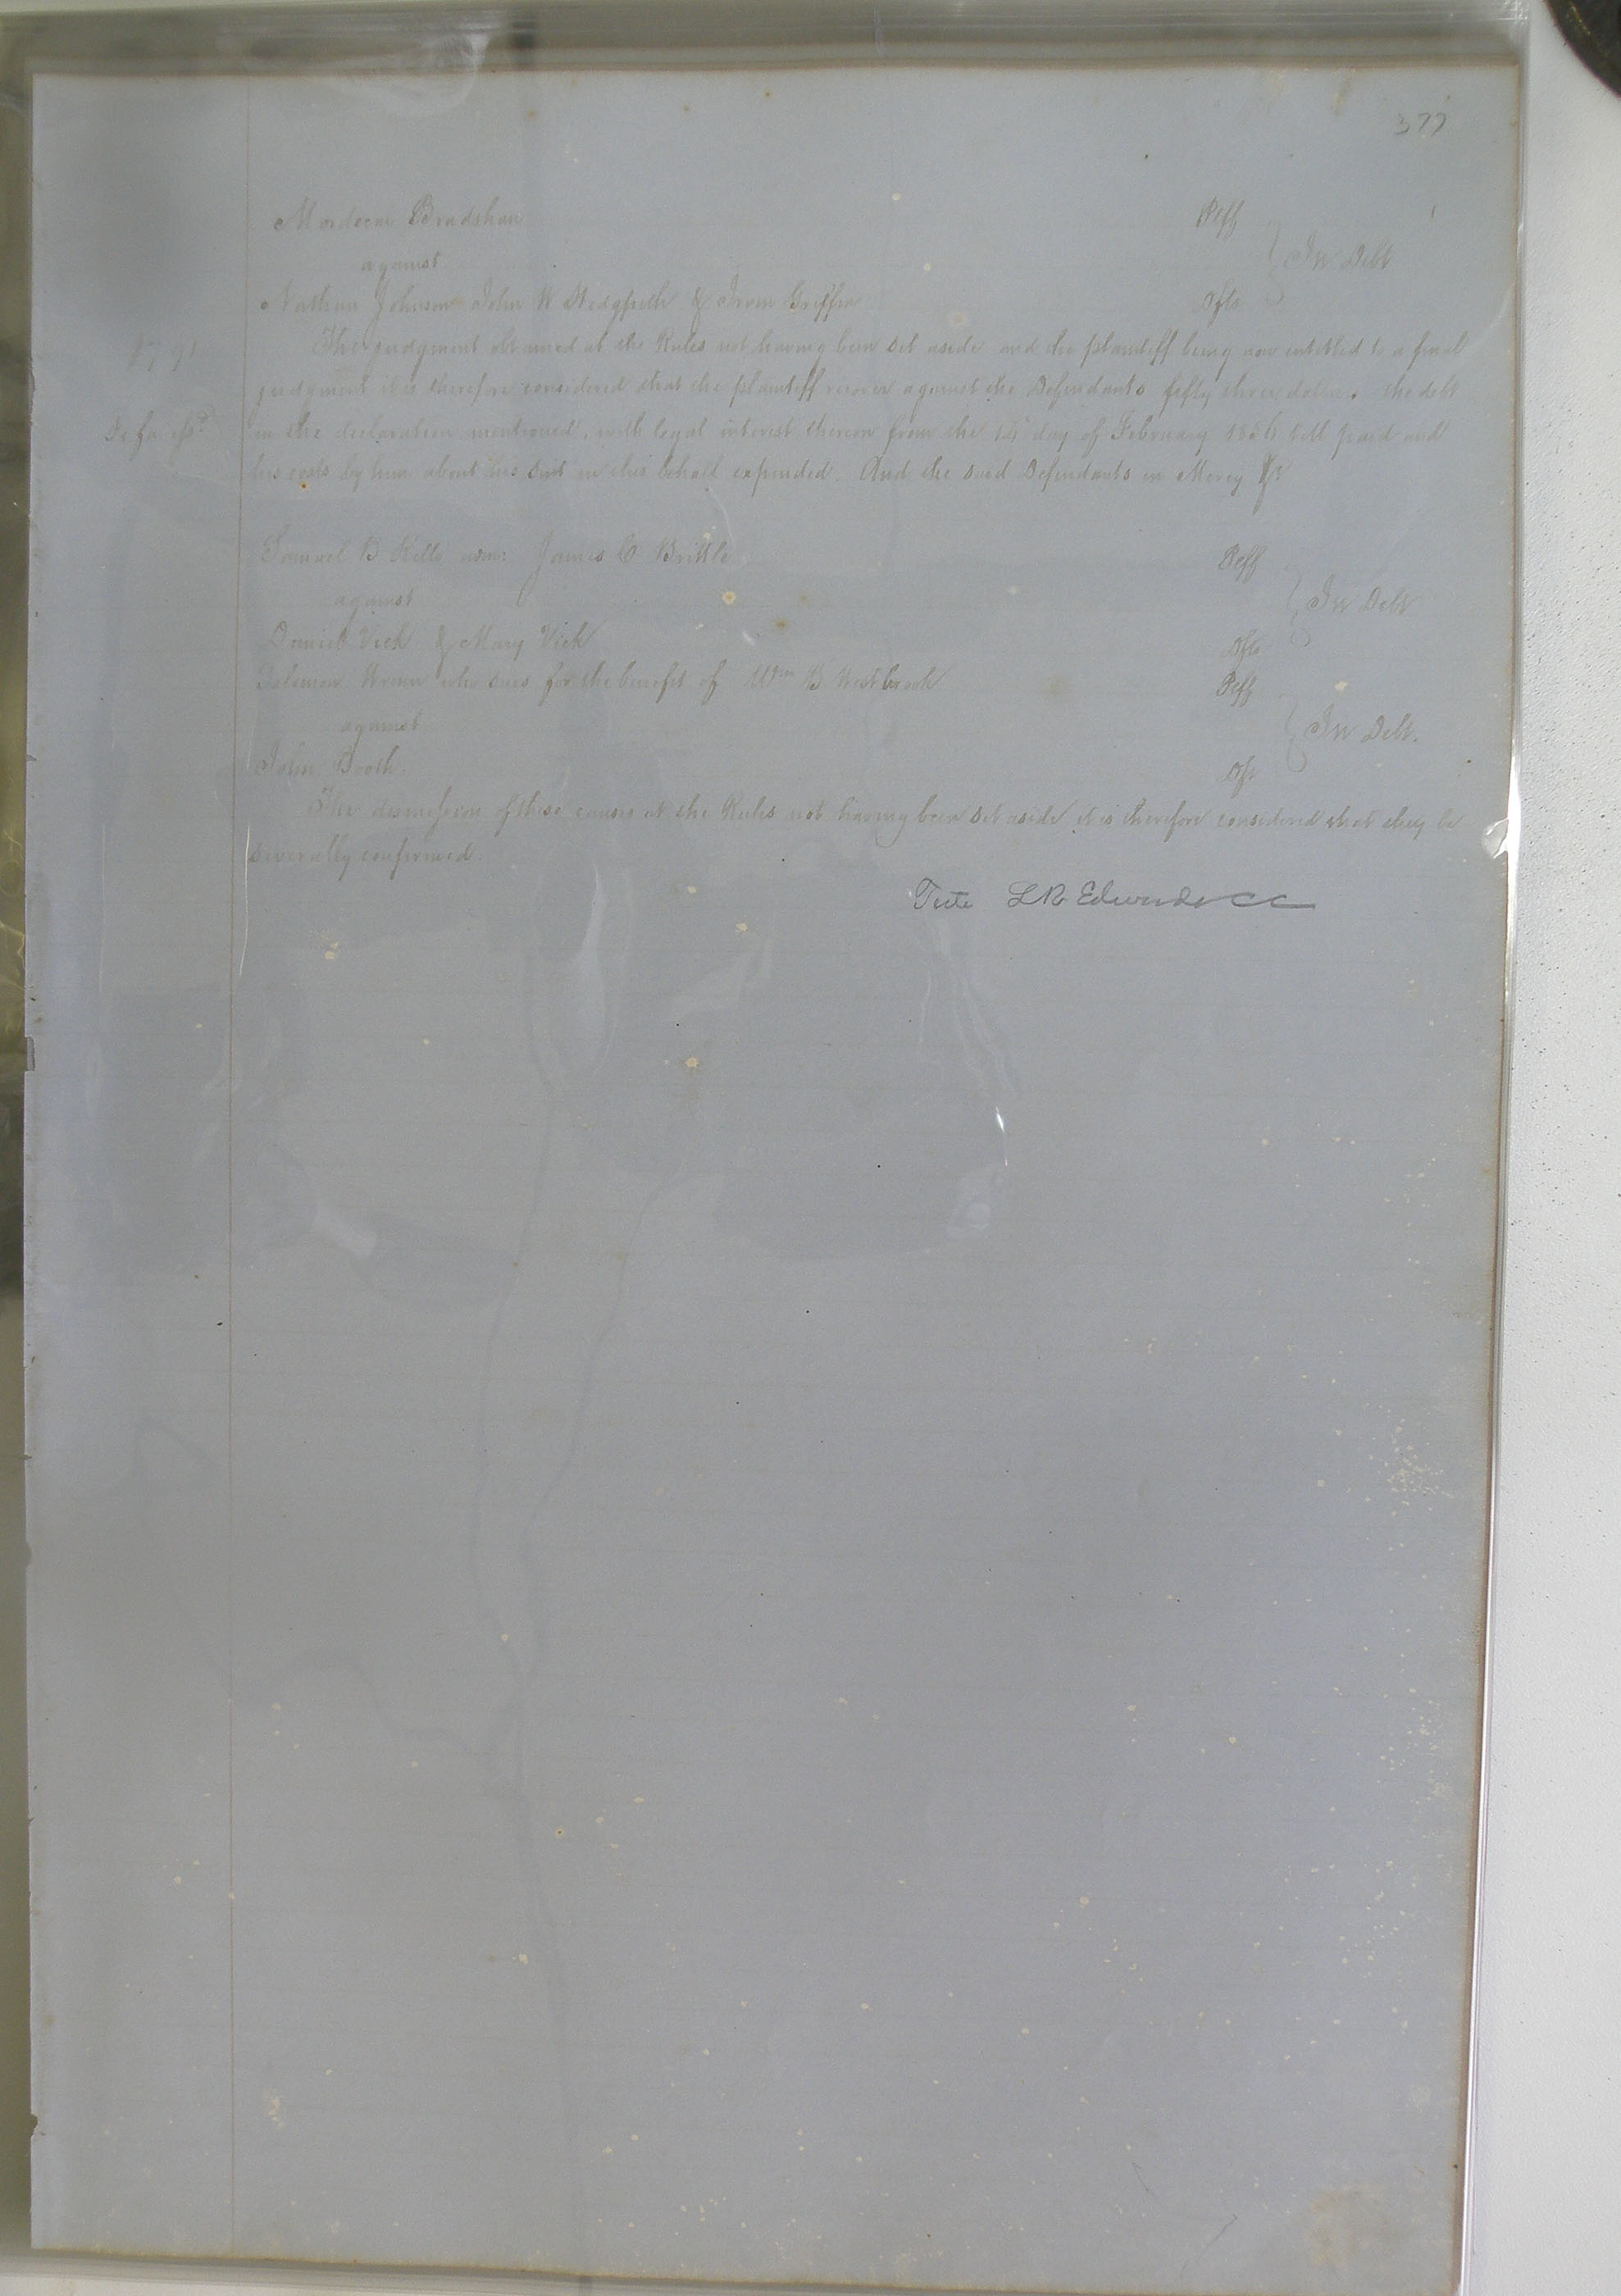 377
Mordecai Bradshaw Pltff
against In Debt
Nathan Johnson John W & Irvin Griffin Dfts
The judgment obtained at the Rules not having been set aside and the plaintiff being now entitled to a final
judgment it is therefore considered that the plaintiff recover against the Defendants fifty three dollars the debt
in the declaration mentioned, with legal interest thereon from the 14 day of February till paid and
his costs by him about his suit in this behalf expended. And the said Defendants in Mercy &c
Samuel B Kello James C Brittle Pltff
against In Debt
Daniel Vick & Mary Vick Dfts
Solomon Wrenn who sues for the benefit of Wm B Westbrook Pltff
against In Debt.
John Booth. Dft
The dismission of these causes at the Rules not having been set aside it is therefore considered that they be
severally confirmed.
Teste L R Edwards CC